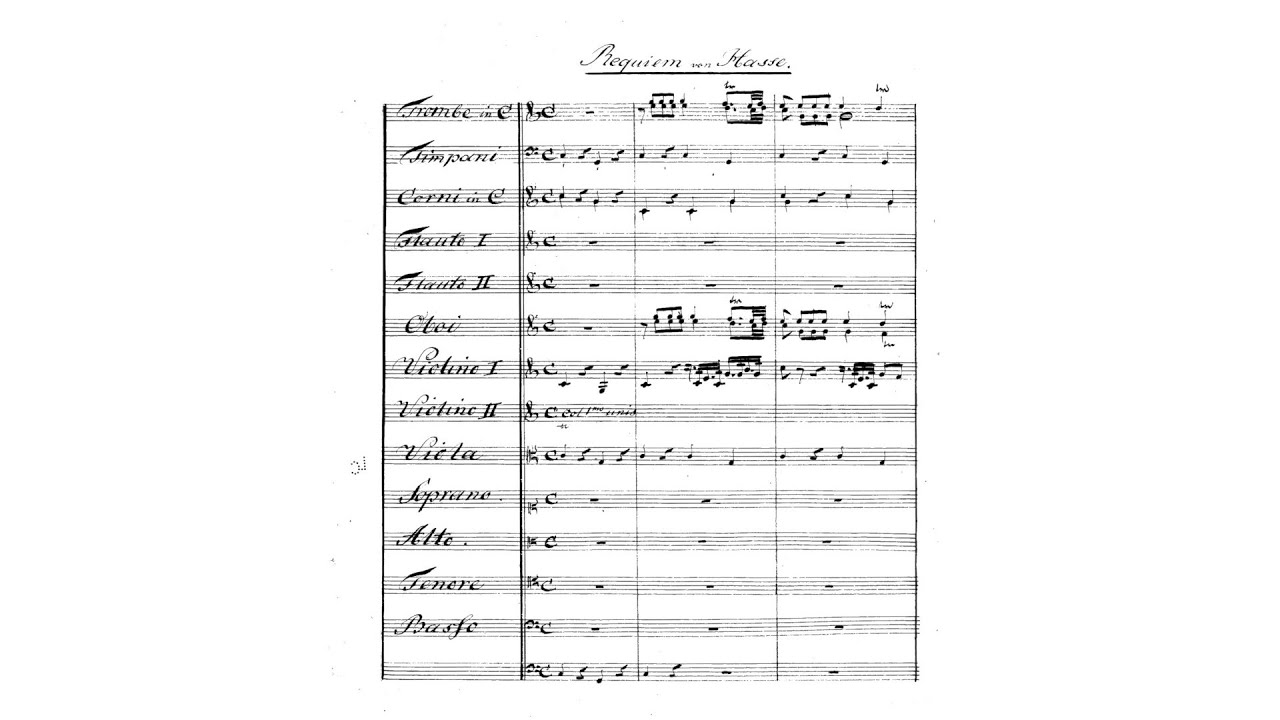 Requiem von Hasse.
Trombe in C
Timpani
Corni in C
Flauto I
Flauto II
Oboi
Violino I
Violino II
Col 1mo unis
Viola
Soprano.
Alto.
Tenore
Basso